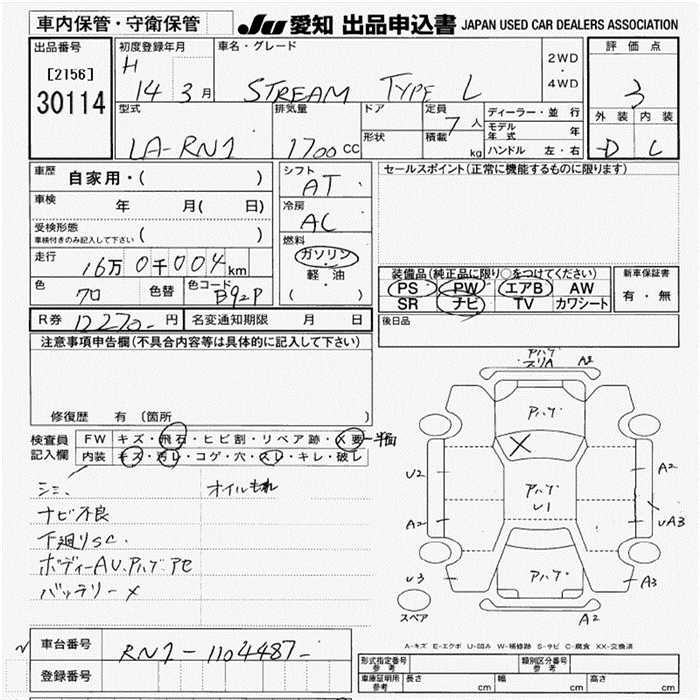 車内保管・守衛保管
JU 愛知 出品申込書 JAPAN USED CAR DEALERS ASSOCIATION
出品番号
[2156]
30114
初度登録年月
H
14 3 月
車名・グレード
STREAM TYPE L
2WD
・
4WD
評価点
3
外装 内装
D C
型式
LA-RN1
排気量
1700 CC
ドア
形状
定員
7 人
積載
kg
ディーラー・並行
モデル年式 年
ハンドル 左・右
車歴
自家用・( )
車検 年 月( 日)
受検形態
車検付きのみ記入して下さい ( )
走行
16万 0千 004 km
色
クロ
色替
色コード
B92P
シフト
AT
冷房
AC
燃料
ガソリン
・
軽油
( )
セールスポイント(正常に機能するものに限ります)
装備品(純正品に限り○をつけてください)
PS PW エアB AW
SR ナビ TV カワシート
新車保証書
有・無
後日品
R券 12270- 円
名変通知期限 月 日
注意事項申告欄(不具合内容等は具体的に記入して下さい)
修復歴 有 (箇所 )
検査員
記入欄
FW キズ・飛石・ヒビ割・リペア跡・X要
内装 キズ・汚レ・コゲ・穴・スレ・キレ・破レ
シミ、 オイルもれ
ナビ不良
下廻りSC.
ボディーAU.アハゲ アセ
バッテリー×
アハゲ
スリA A2
アハゲ
X
アハゲ
U1
アハゲ
U2
A2
U3
A2
UA3
A3
A2
スペア
A-キズ E-エクボ U-凹み W-補修跡 S-サビ C-腐食 XX-交換済
車台番号
RN1-1104487-
登録番号
形式指定番号
参考
類別区分番号
参考
車庫証明用
参考
長さ cm
幅 cm
高さ cm